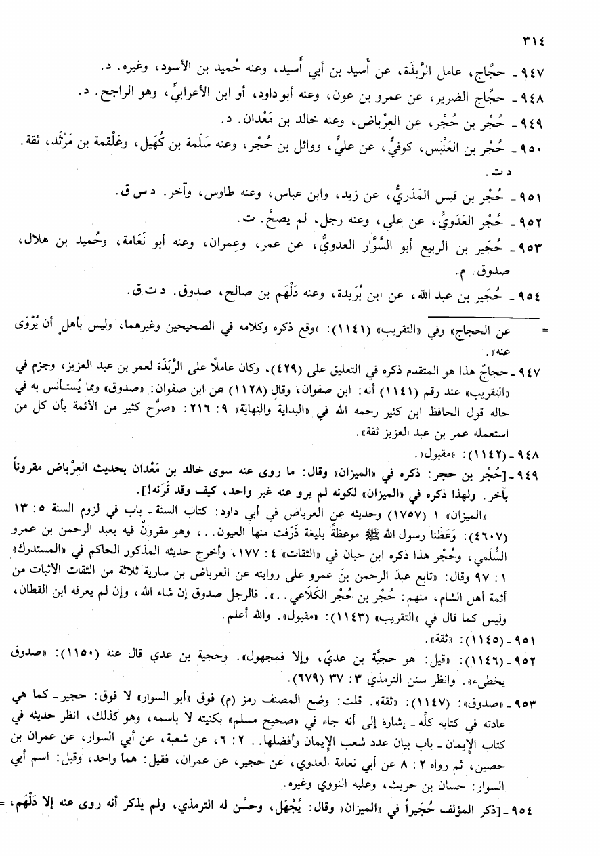 ٣١٤
٩٤٧ ـ حجَّاج، عامل الرَّبَذَة، عن أَسيد بن أبي أَسيد، وعنه حُميد بن الأسود، وغيره. د.
٩٤٨ ـ حجَّاج الضرير، عن عمرو بن عون، وعنه أبو داود، أو ابن الأعرابيِّ، وهو الراجح. د.
٩٤٩ ـ حُجْر بن حُجْر، عن العِرْباض، وعنه خالد بن مَعْدان. د.
٩٥٠ ـ حُجْر بن العَنْبَس، كوفيٌّ، عن عليٍّ، ووائل بن حُجْر، وعنه سَلَمة بن كُهَيل، وعَلْقمة بن مَرْثَد، ثقة.
د ت.
٩٥١ ـ حُجْر بن قيس المَدَريُّ، عن زيد، وابن عباس، وعنه طاوس، وآخر. د س ق.
٩٥٢ ـ حُجْر العَدَويُّ، عن علي، وعنه رجل، لم يصحَّ. ت.
٩٥٣ ـ حُجَير بن الربيع أبو السَّوَّار العدويُّ، عن عمر، وعِمران، وعنه أبو نَعَامة، وحُميد بن هلال،
صدوق. م.
٩٥٤ ـ حُجَير بن عبد الله، عن ابن بُرَيدة، وعنه دَلْهَم بن صالح، صدوق. د ت ق.
= عن الحجاج» وفي «التقريب» (١١٤١): «وقع ذكره وكلامه في الصحيحين وغيرهما، وليس بأهلٍ أن يُرْوَى
عنه».
٩٤٧ ـ حجاجٌ هذا هو المتقدم ذكره في التعليق على (٤٢٩)، وكان عاملًا على الرَّبَذة لعمر بن عبد العزيز، وجزم في
«التقريب» عند رقم (١١٤١) أنه: ابن صفوان، وقال (١١٢٨) عن ابن صفوان: «صدوق» ومما يُستأنس به في
حاله قول الحافظ ابن كثير رحمه الله في «البداية والنهاية» ٩: ٢١٦: «صرَّح كثير من الأئمة بأن كل من
استعمله عمر بن عبد العزيز ثقة».
٩٤٨ ـ (١١٤٢): «مقبول».
٩٤٩ ـ [حُجْر بن حجر: ذكره في «الميزان» وقال: ما روى عنه سوى خالد بن مَعْدان بحديث العِرْباض مقروناً
بآخر. ولهذا ذكره في «الميزان» لكونه لم يرو عنه غير واحد، كيف وقد قُرَنه!].
«الميزان» ١ (١٧٥٧) وحديثه عن العرباض في أبي داود: كتاب السنة ـ باب في لزوم السنة ٥: ١٣
(٤٦٠٧): وَعَظَنا رسول الله ﷺ موعظةً بليغة ذَرَفت منها العيون... وهو مقرونٌ فيه بعبد الرحمن بن عمرو
السُّلمي، وحُجْر هذا ذكره ابن حبان في «الثقات» ٤: ١٧٧، وأخرج حديثه المذكور الحاكم في «المستدرك»
١: ٩٧ وقال: «تابع عبدَ الرحمن بن عمرو على روايته عن العرباض بن سارية ثلاثة من الثقات الأثبات من
أئمة أهل الشام، منهم: حُجْر بن حُجْر الكَلَاعي...». فالرجل صدوق إن شاء الله، وإن لم يعرفه ابن القطان،
وليس كما قال في «التقريب» (١١٤٣): «مقبول». والله أعلم.
٩٥١ ـ (١١٤٥): «ثقة».
٩٥٢ ـ (١١٤٦): «قيل: هو حجيَّة بن عديّ، وإلا فمجهول». وحجية بن عدي قال عنه (١١٥٠): «صدوق
يخطىء». وانظر سنن الترمذي ٣: ٣٧ (٦٧٩).
٩٥٣ ـ «صدوق»: (١١٤٧): «ثقة». قلت: وضع المصنف رمز (م) فوق «أبو السوار» لا فوق: حجير ـ كما هي
عادته في كتابه كلِّه ـ إشارة إلى أنه جاء في «صحيح مسلم» بكنيته لا باسمه، وهو كذلك، انظر حديثه في
كتاب الإيمان ـ باب بيان عدد شعب الإيمان وأفضلها.. ٢: ٦، عن شعبة، عن أبي السوار، عن عمران بن
حصين، ثم رواه ٢: ٨ عن أبي نعامة العدوي، عن حجير، عن عمران، فقيل: هما واحد، وقيل: اسم أبي
السوار: حسان بن حريث، وعليه النووي وغيره.
٩٥٤ ـ [ذكر المؤلف حُجَيراً في «الميزان» وقال: يُجْهَل، وحسَّن له الترمذي، ولم يذكر أنه روى عنه إلا دَلْهَم، =